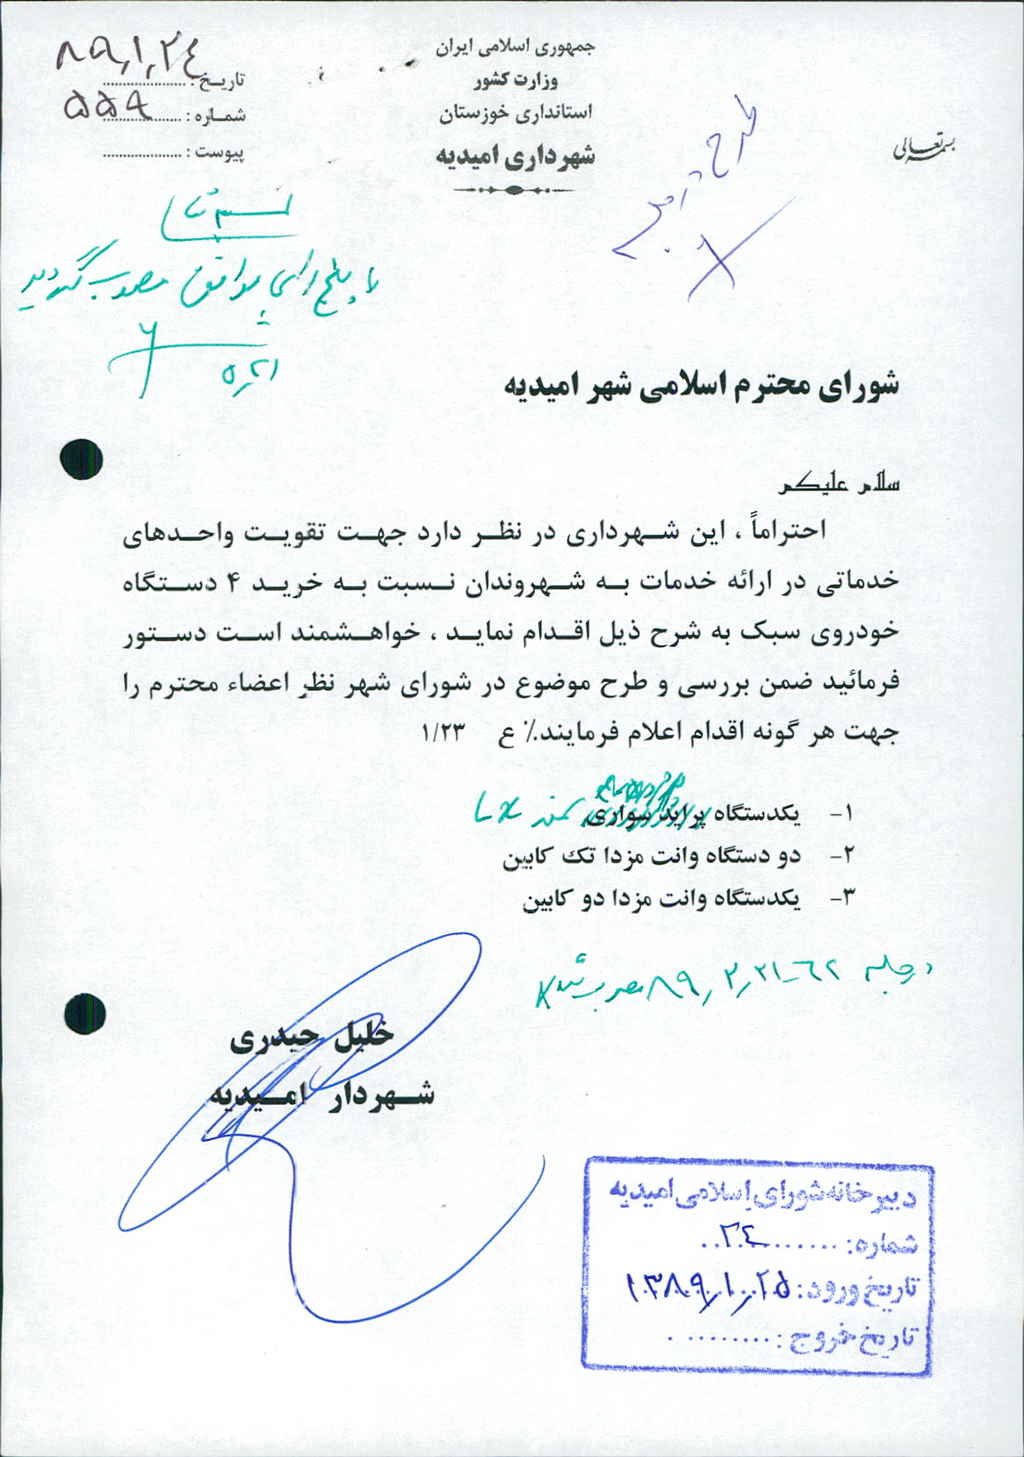 بسمه تعالی
جمهوری اسلامی ایران
وزارت کشور
استانداری خوزستان
شهرداری امیدیه
تاریخ : ۸۹٫۱٫۲۴
شماره : ۵۵۹
پیوست :
طرح در
بسمه تعالی
با پنج رای موافق مصوب گردید
شورای محترم اسلامی شهر امیدیه
سلام علیکم
احتراماً ، این شهرداری در نظر دارد جهت تقویت واحدهای
خدماتی در ارائه خدمات به شهروندان نسبت به خرید ۴ دستگاه
خودروی سبک به شرح ذیل اقدام نماید ، خواهشمند است دستور
فرمائید ضمن بررسی و طرح موضوع در شورای شهر نظر اعضاء محترم را
جهت هر گونه اقدام اعلام فرمایند.٪ ع ۱/۲۳
۱- یکدستگاه پراید سواری سمند
۲- دو دستگاه وانت مزدا تک کابین
۳- یکدستگاه وانت مزدا دو کابین
در جلسه ۶۲-۸۹٫۲٫۲۱ مصوب شد
خلیل حیدری
شهردار امیدیه
دبیرخانه شورای اسلامی امیدیه
شماره: ۲۴
تاریخ ورود: ۱۳۸۹٫۱٫۲۵
تاریخ خروج :